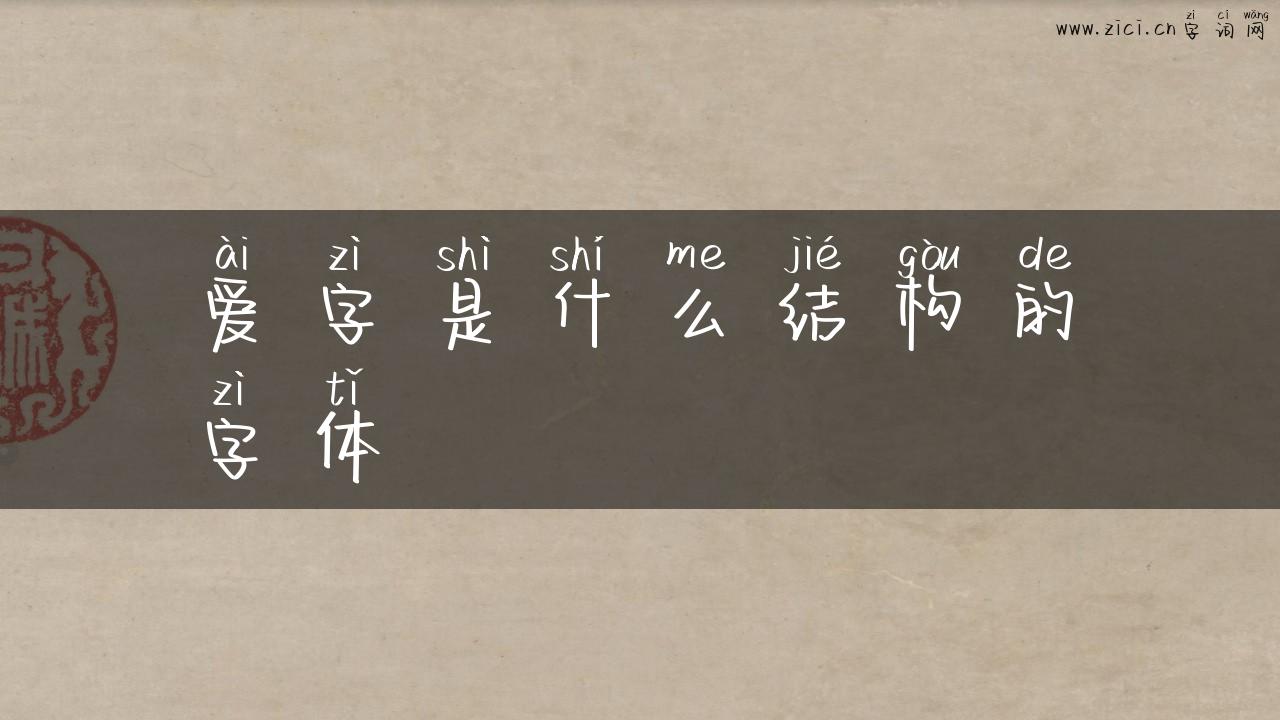 zì cí wǎng
www.zici.cn 字词网
ài zì shì shí me jié gòu de
爱字是什么结构的
zì tǐ
字体